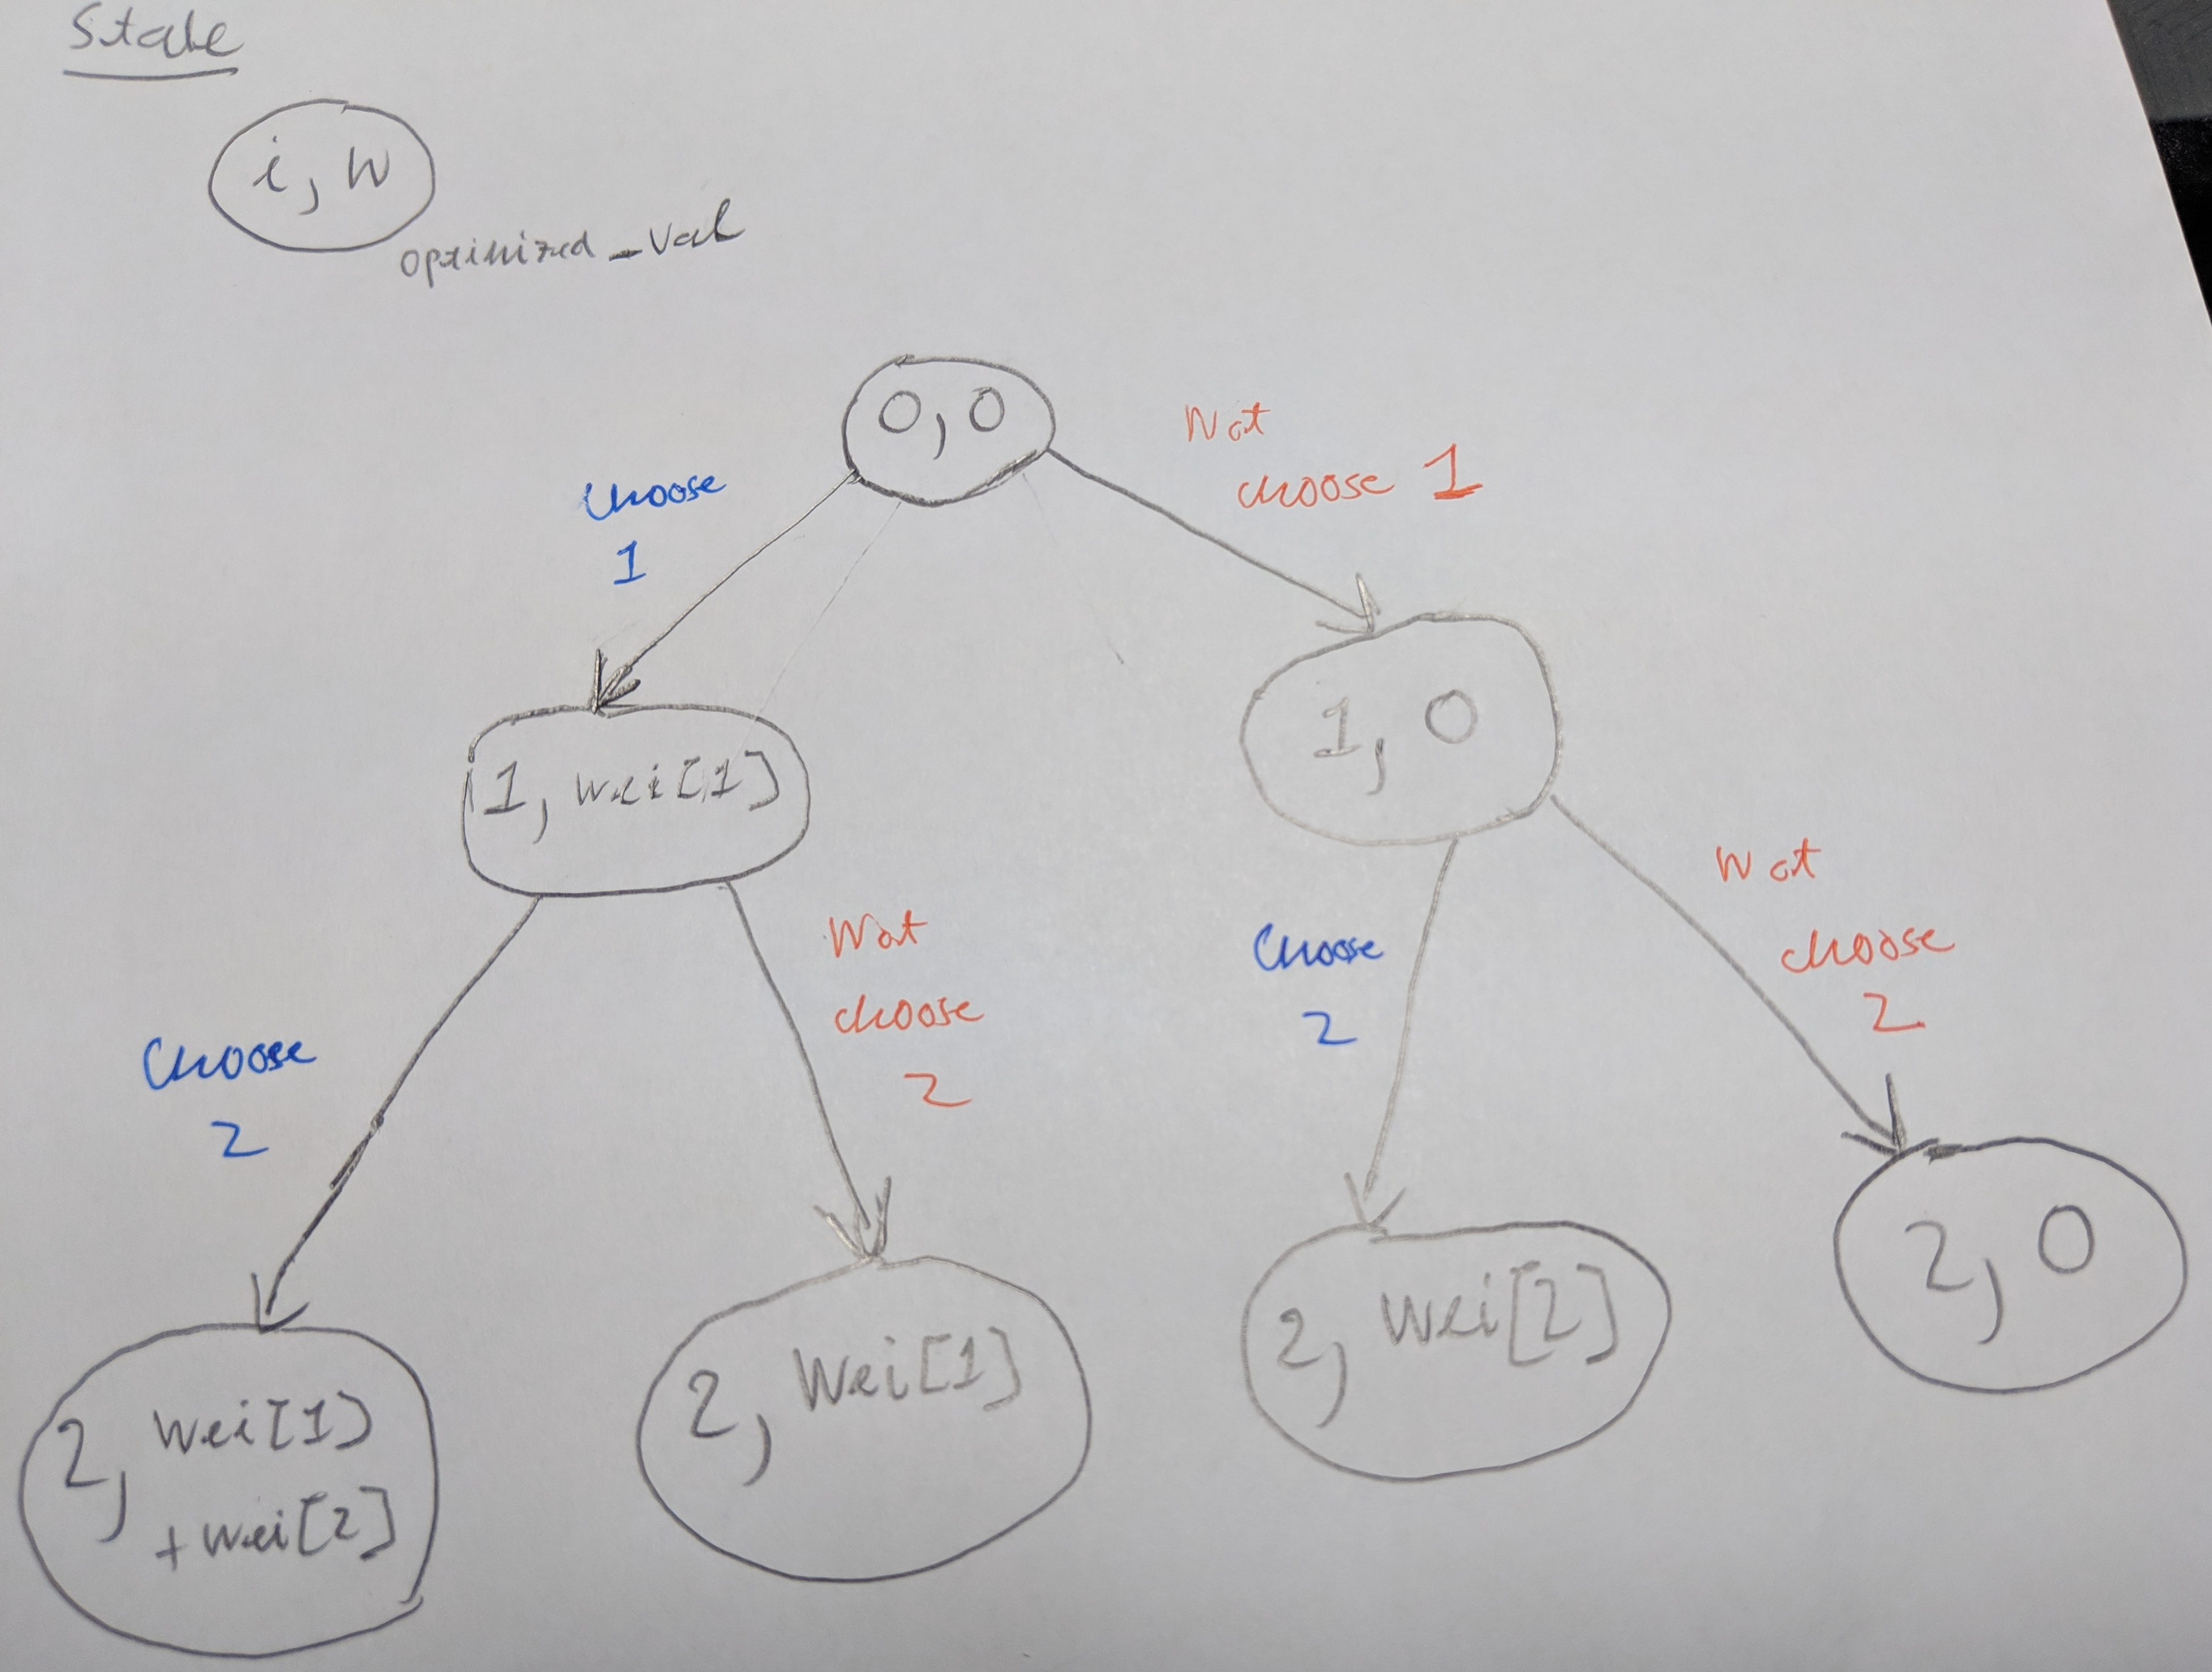 State
i, W
optimized_val
0, 0
Not
choose 1
Choose
1
1, wei[1]
1, 0
Not
choose
2
Choose
2
Not
choose
2
Choose
2
2, wei[1]
+wei[2]
2, Wei[1]
2, Wei[2]
2, 0